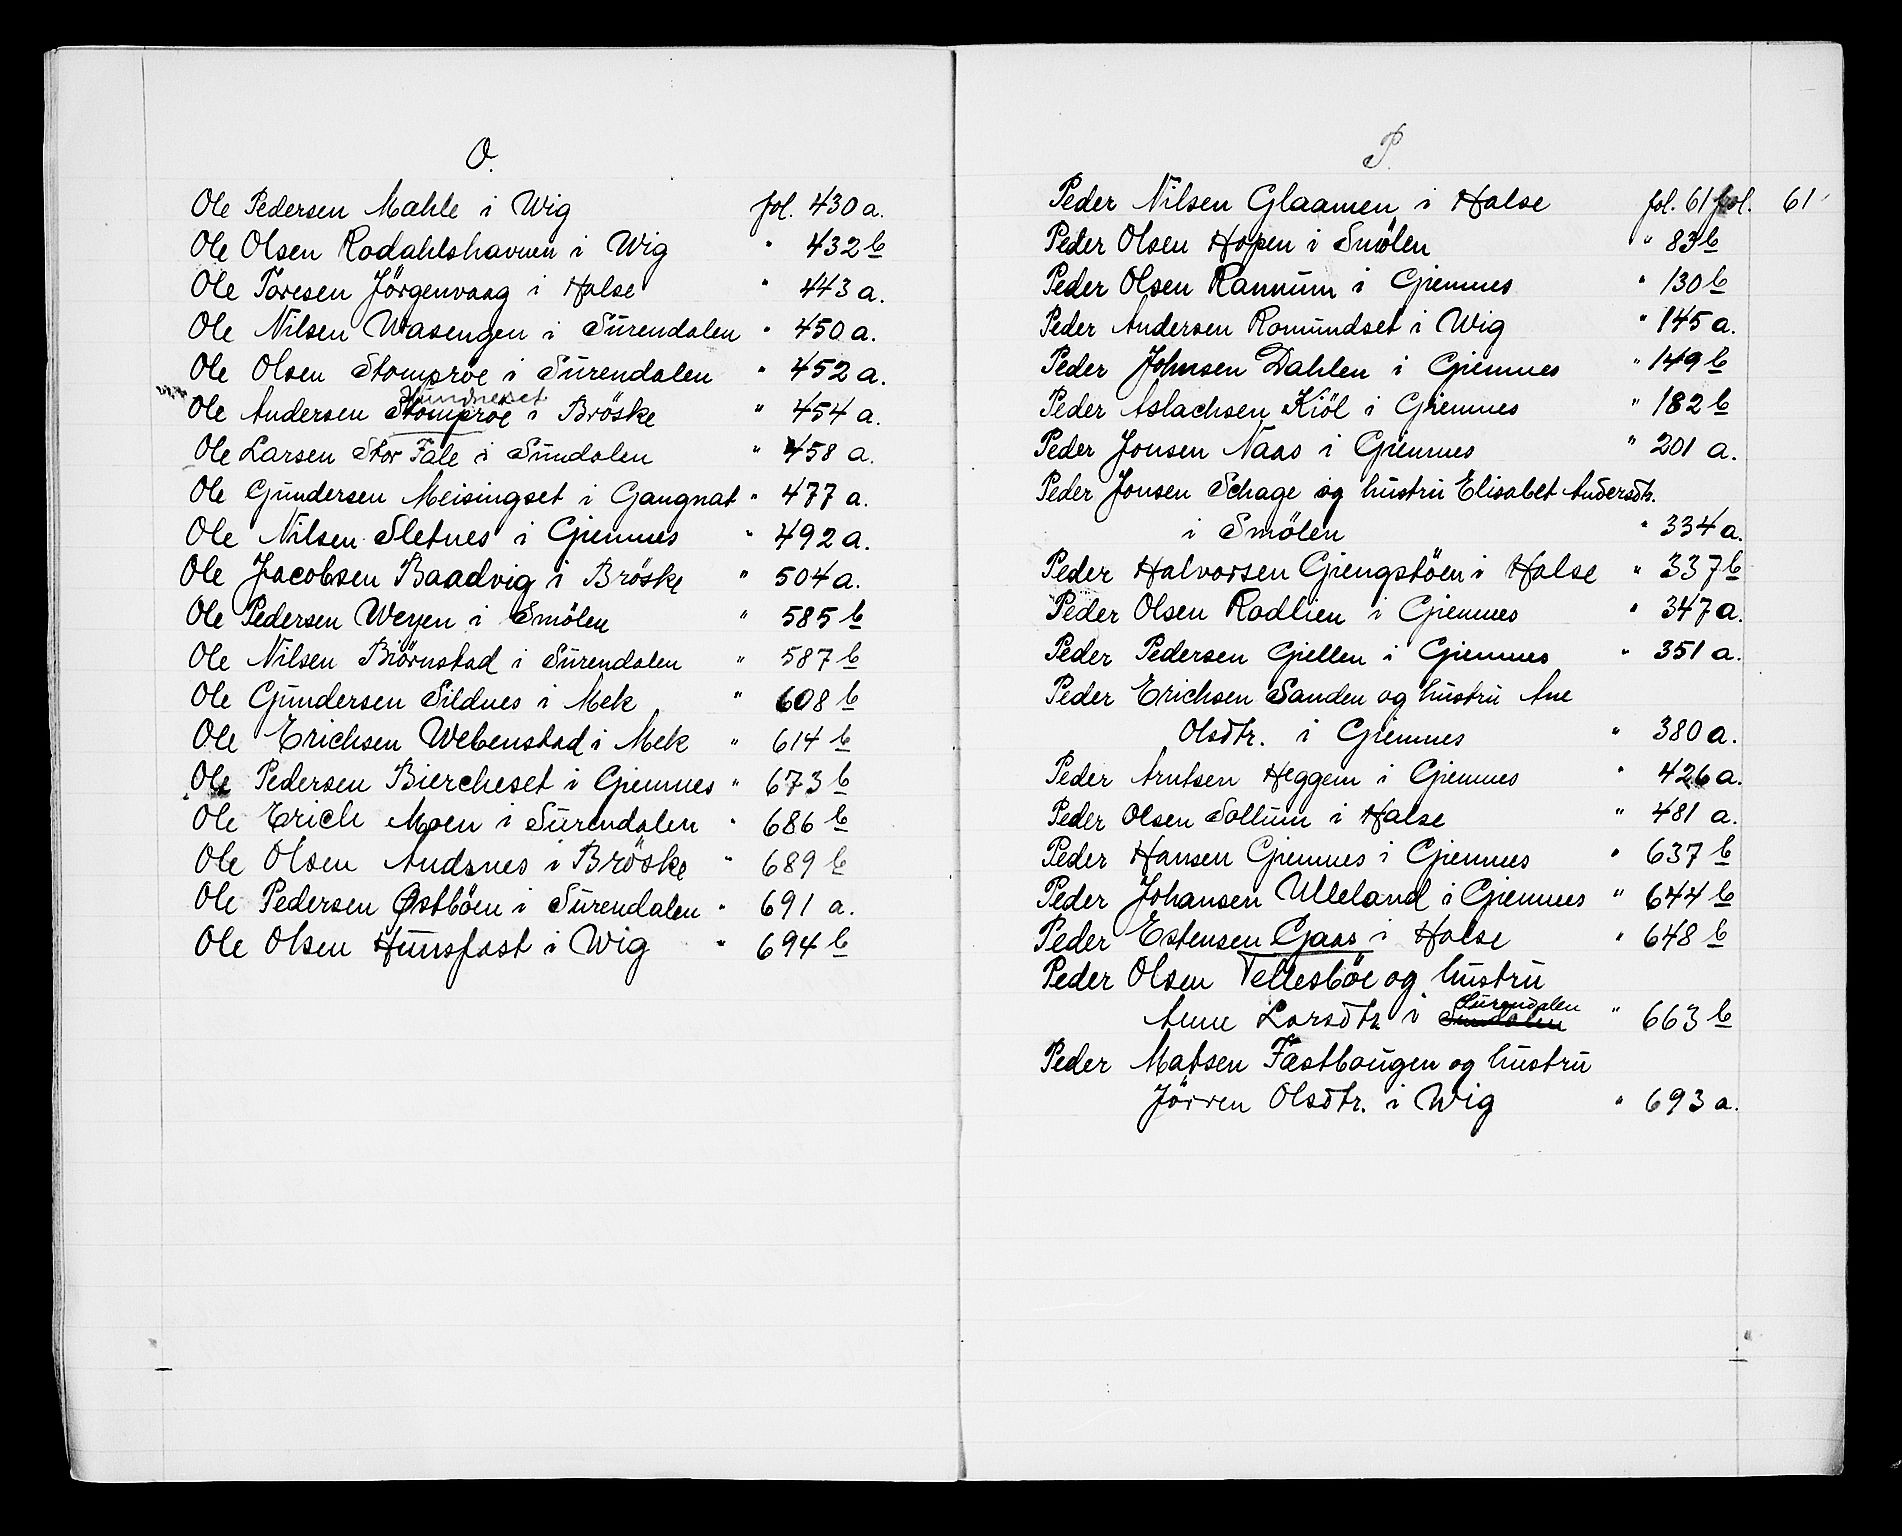 O.
Ole Pedersen Mahle i Wig fol. 430 a.
Ole Olsen Rodahlshavnen i Wig " 432 b
Ole Toresen Jörgenvaag i Halse " 443 a.
Ole Nilsen Wasengen i Surendalen " 450 a.
Ole Olsen Stomprøe i Surendalen " 452 a.
Ole Andersen Stomprøe i Bröske " 454 a.
Ole Larsen Stor Fale i Sundalen " 458 a.
Ole Gundersen Meisingset i Gangnat " 477 a.
Ole Nilsen Sletnes i Giemnes " 492 a.
Ole Jacobsen Baadvig i Bröske " 504 a.
Ole Pedersen Weyen i Smölen " 585 b
Ole Nilsen Biörnstad i Surendalen " 587 b
Ole Gundersen Sildnes i Mek " 608 b
Ole Erichsen Webenstad i Mek " 614 b
Ole Pedersen Biercheset i Giemnes " 673 b
Ole Erich Moen i Surendalen " 686 b
Ole Olsen Andsnes i Bröske " 689 b
Ole Pedersen Østböen i Surendalen " 691 a.
Ole Olsen Hunsfast i Wig " 694 b
P.
Peder Nilsen Glaamen i Halse fol. 61 fol. 61
Peder Olsen Hopen i Smölen " 83 b
Peder Olsen Rannum i Giemnes " 130 b
Peder Andersen Romundset i Wig " 145 a.
Peder Johnsen Dahlen i Giemnes " 149 b
Peder Aslachsen Kiöl i Giemnes " 182 b
Peder Jonsen Naas i Giemnes " 201 a.
Peder Jonsen Schage og hustru Elisabet Andersdtr.
i Smölen " 334 a.
Peder Halvorsen Giengstöen i Halse " 337 b
Peder Olsen Rodlien i Giemnes " 347 a.
Peder Pedersen Giellen i Giemnes " 351 a.
Peder Erichsen Sanden og hustru Ane
Olsdtr. i Giemnes " 380 a.
Peder Arntsen Heggem i Giemnes " 426 a.
Peder Olsen Sollum i Halse " 481 a.
Peder Hansen Giemnes i Giemnes " 637 b
Peder Johansen Ulleland i Giemnes " 644 b
Peder Estensen Gaas i Halse " 648 b
Peder Olsen Tellesböe og hustru
Anne Larsdtr i Sundalen Surendalen " 663 b
Peder Matsen Fæsthaugen og hustru
Jörren Olsdtr. i Wig " 693 a.